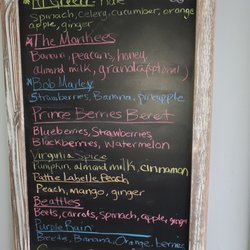 Al Green - Kale
spinach, celery, cucumber, orange
apple, ginger
The Monkees
Banana, peacans, honey,
almond milk, granola (optional)
Bob Marley
Strawberries, Banana, pineapple
Prince Berries Beret
Blueberries, Strawberries
Blackberries, Watermelon
Virginia Spice
Pumpkin, almond milk, cinnamon
Pattie Labelle Peach
Peach, mango, ginger
Beattles
Beets, carrots, Spinach, apple, ginger
Purple Rain
Beets, Banana, Orange, berries